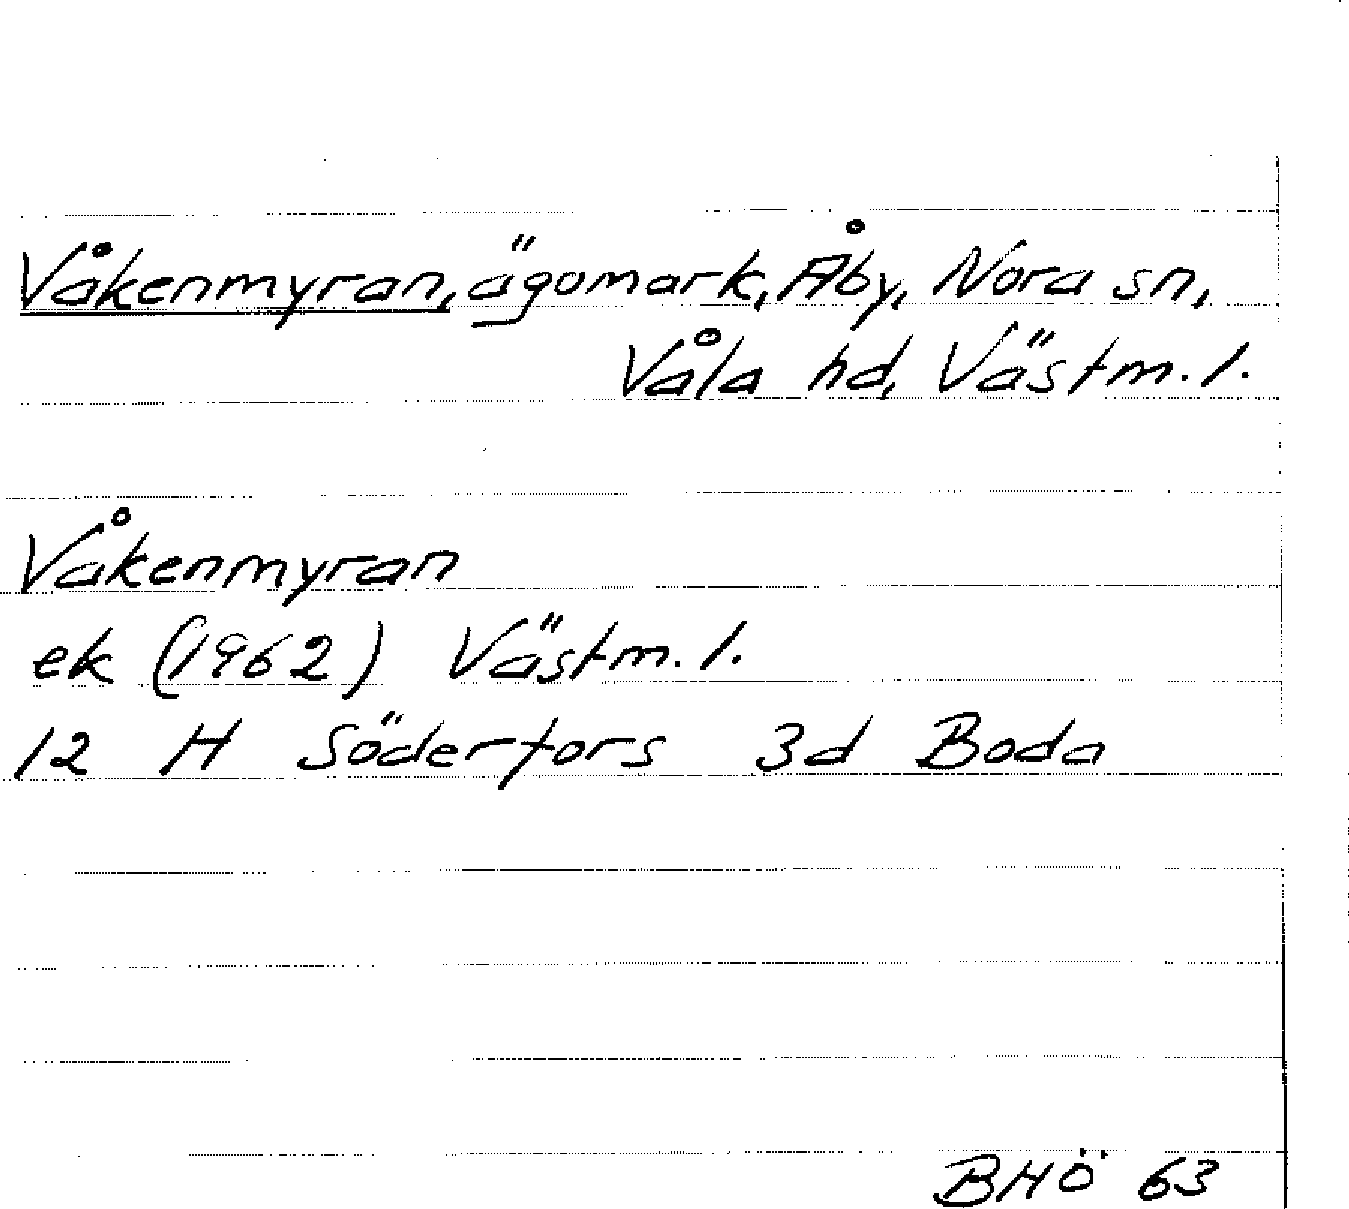 Våkenmyran, ägomark, Åby, Nora sn,
Våla hd, Västm. l.
Våkenmyran
ek (1962) Västm. l.
12 H Söderfors 3d Boda
BHÖ 63